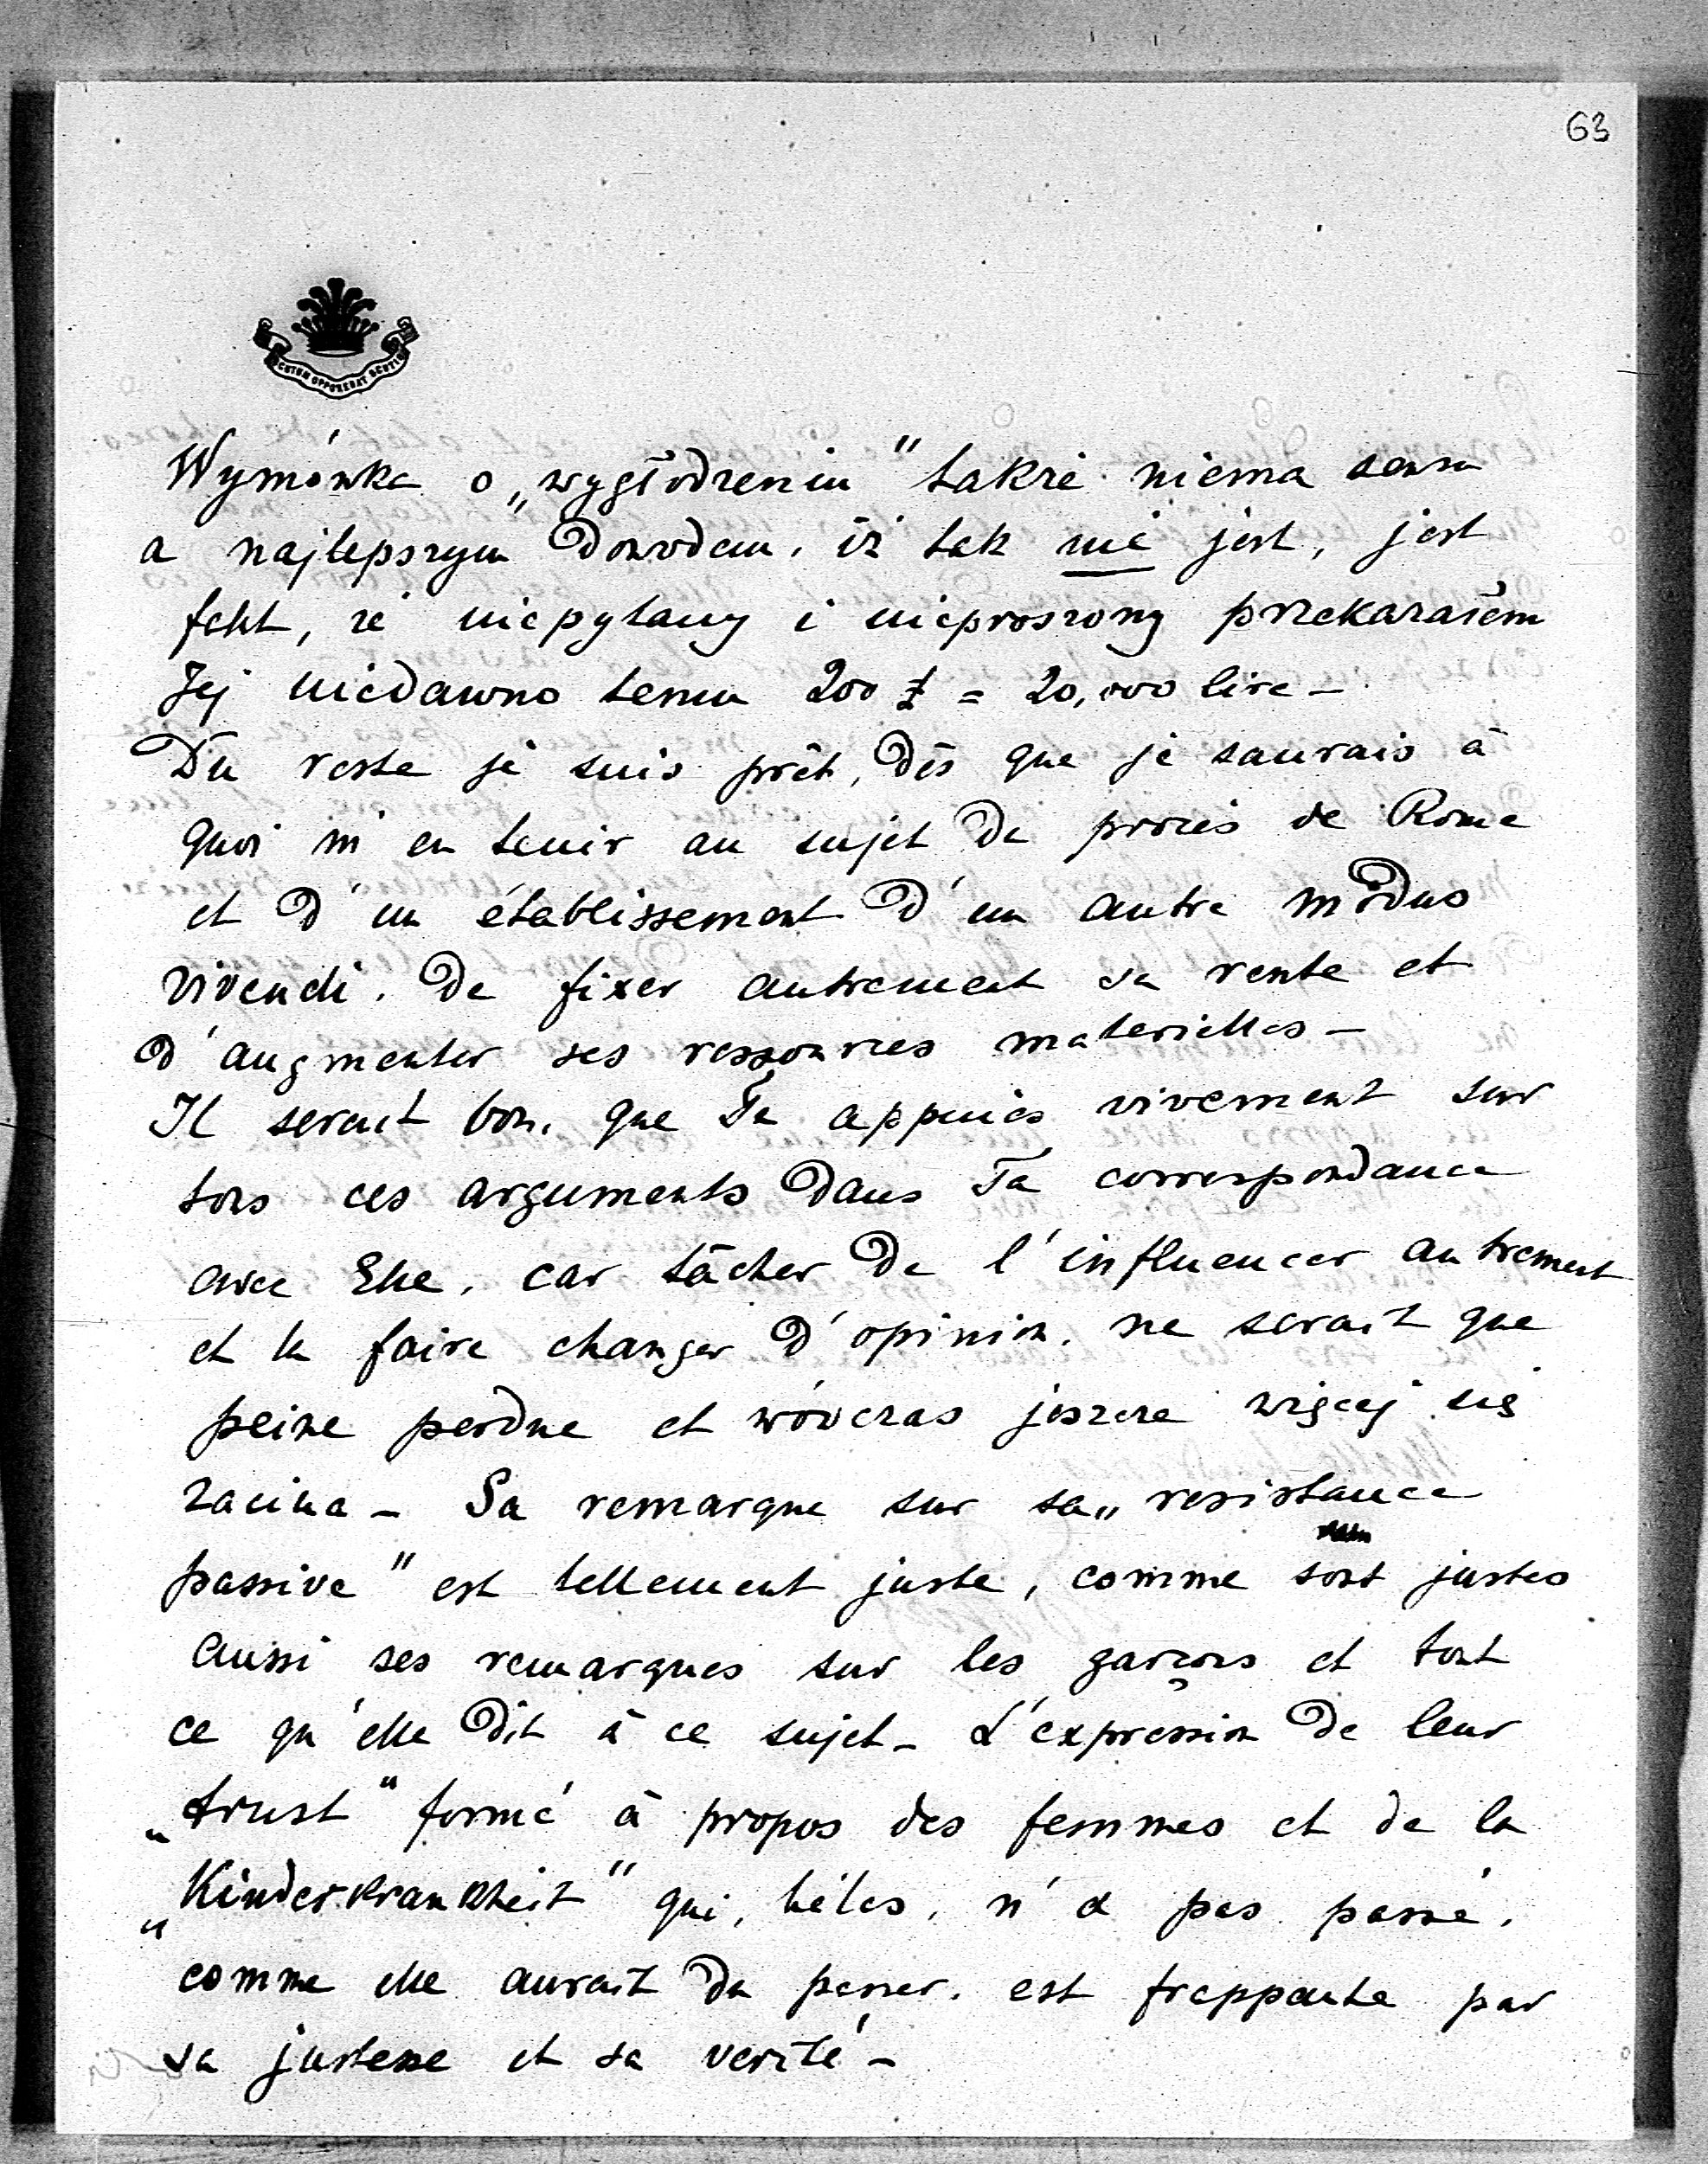 63
SCUTUM OPPONEBAT SCUTIS
Wymówka o „wygłodzeniu" także niema sensu
a najlepszym dowodem, iż tak nie jest, jest
fakt, że niepytany i nieproszony przekazałem
Jej niedawno temu 200 £ = 20,000 lire –
Du reste je suis prêt, dès que je saurais à
quoi m'en tenir au sujet de procès de Rome
et d'un établissement d'un autre modus
vivendi, de fixer autrement sa rente et
d'augmenter ses ressources materielles –
Il serait bon, que Tu appuies vivement sur
tous ces arguments dans Ta correspondance
avec Elle, car tâcher de l'influencer autrement
et la faire changer d'opinion, ne serait que
peine perdue et wówczas jeszcze więcej się
zacina – Sa remarque sur sa „resistance
passive" est tellement juste, comme sont justes
aussi ses remarques sur les garçons et tout
ce qu'elle dit à ce sujet – L'expression de leur
„trust" formé à propos des femmes et de la
„Kinderkrankheit" qui, hélas, n'a pas passé,
comme elle aurait du passer, est frappante par
sa justesse et sa verité –